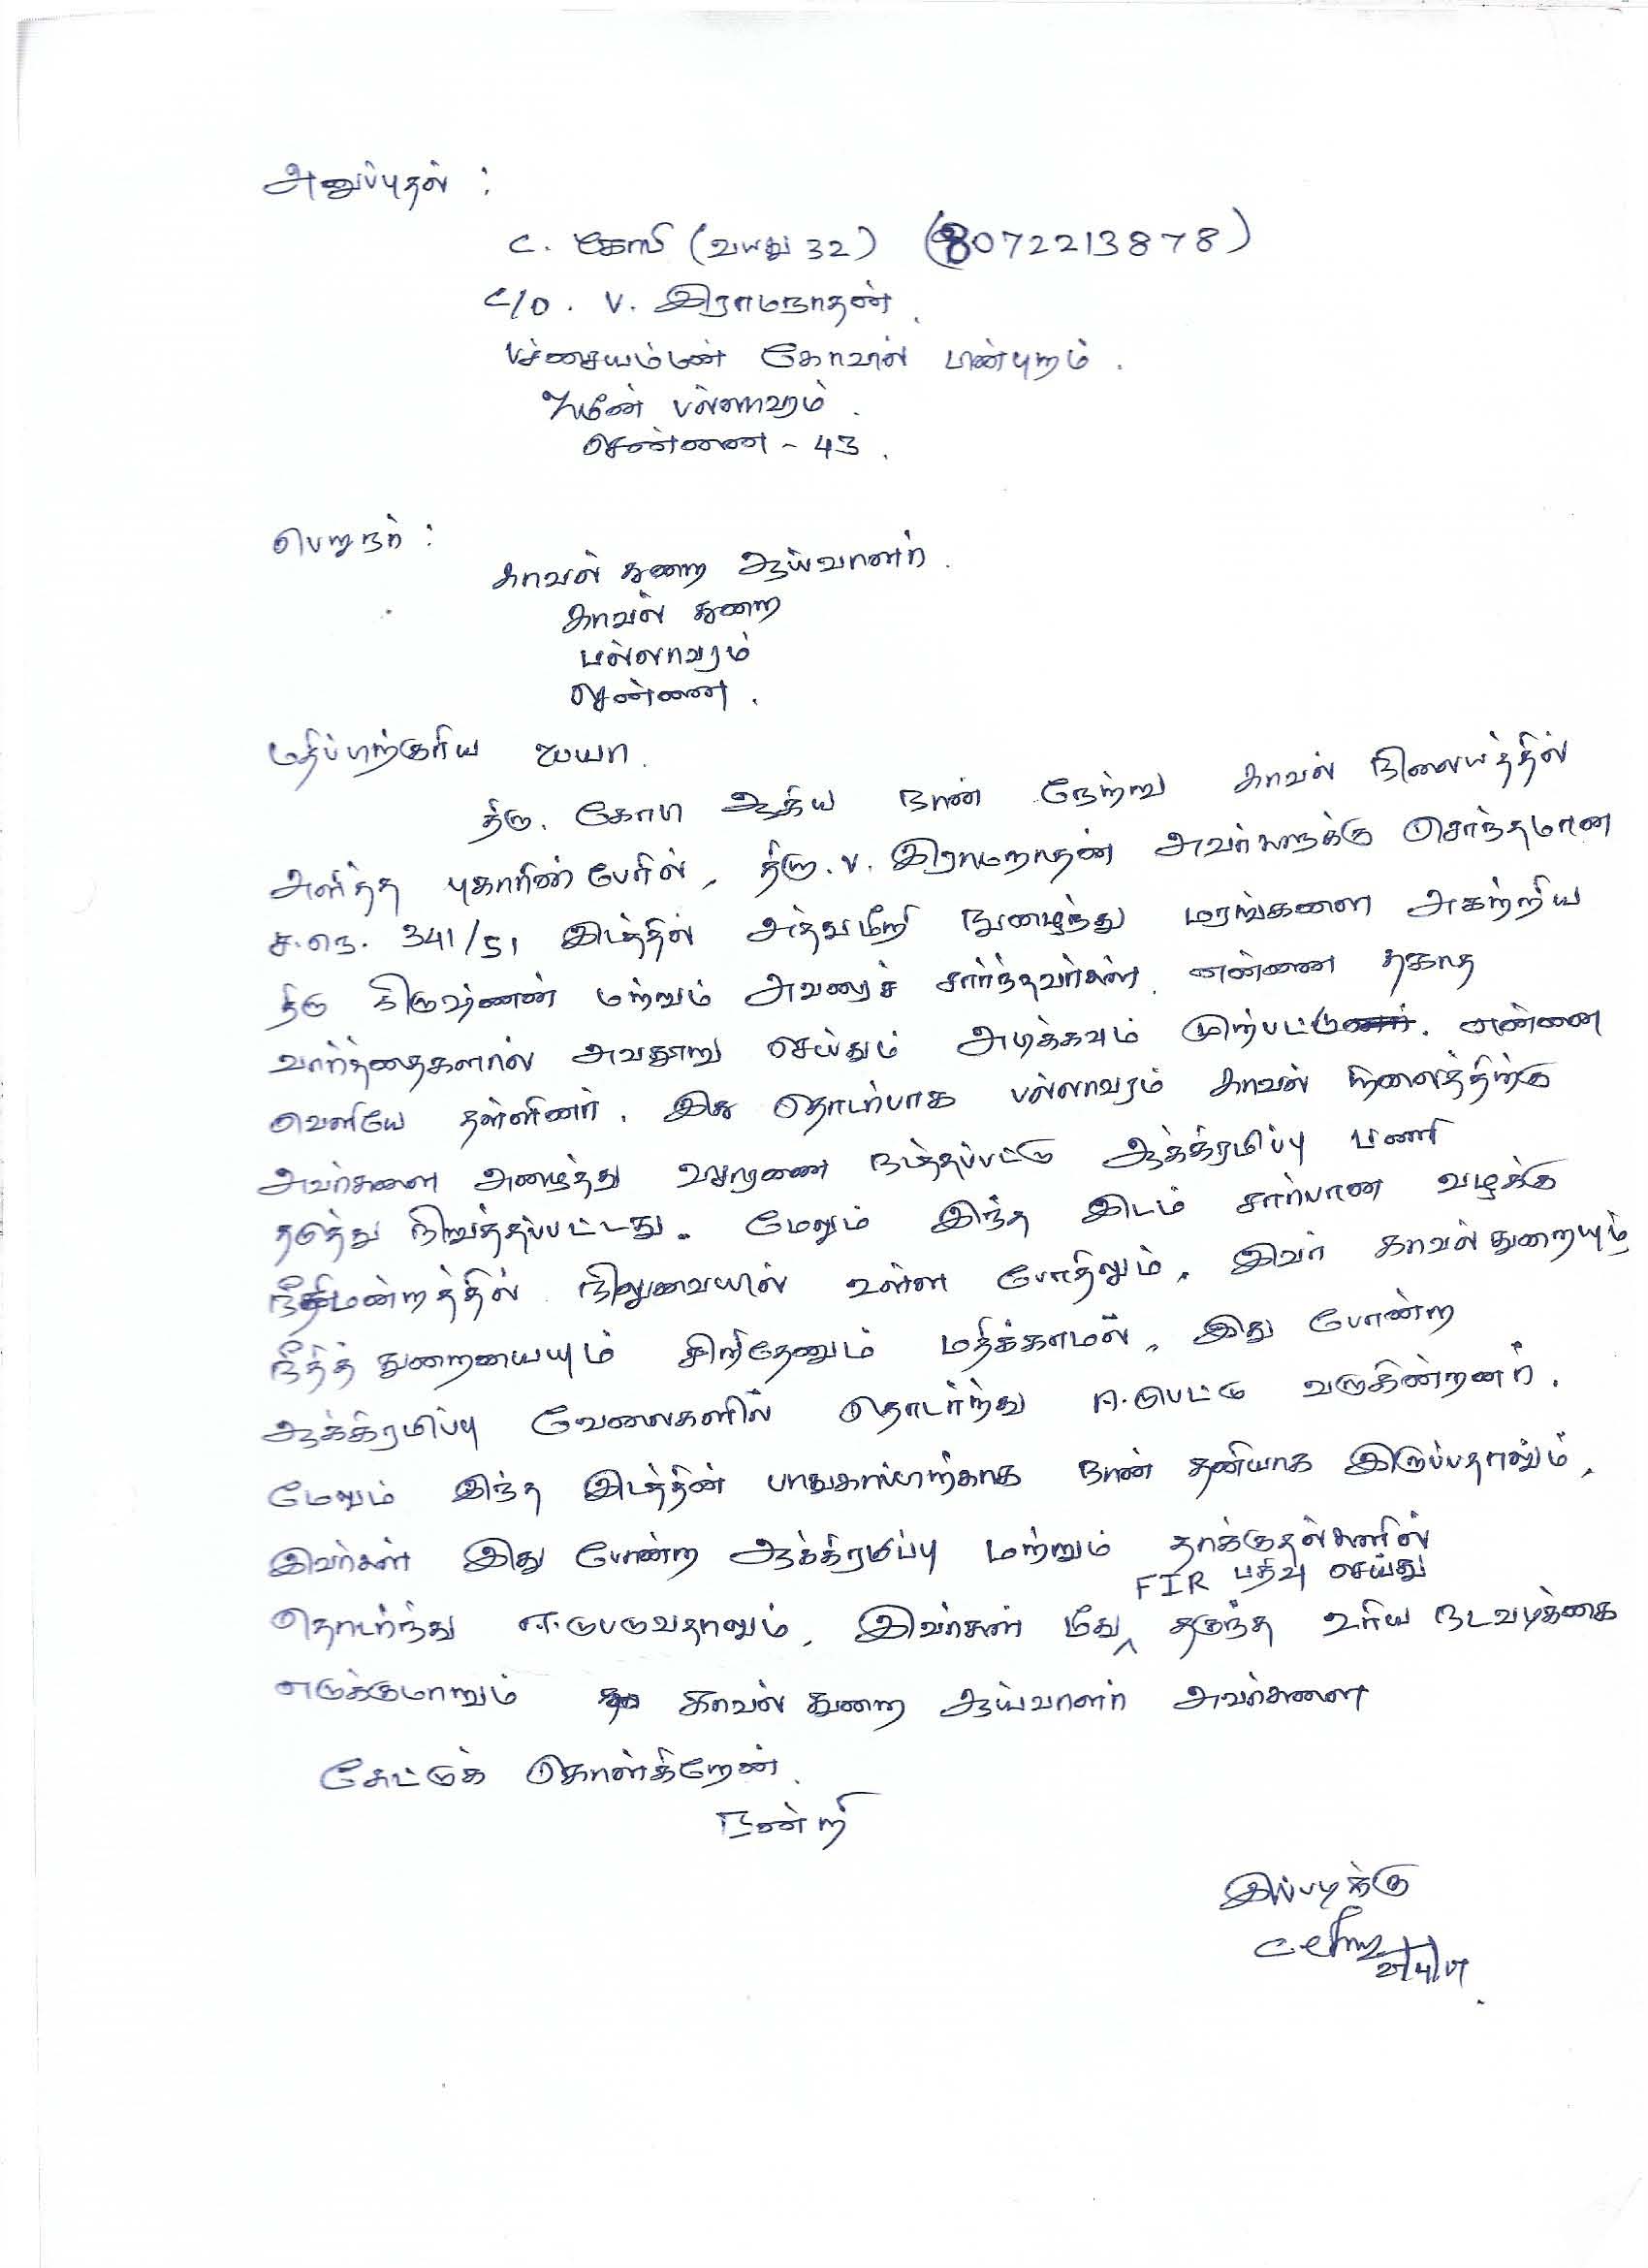 அனுப்புதல் :
C. கோபி (வயது 32) (8072213878)
C/O. V. இராமநாதன்,
பச்சையம்மன் கோவில் பின்புறம்.
ஜமீன் பல்லாவரம்.
சென்னை - 43.
பெறுநர் :
காவல் துறை ஆய்வாளர்.
காவல் துறை
பல்லாவரம்
சென்னை.
மதிப்பிற்குரிய ஐயா.
திரு. கோபி ஆகிய நான் நேற்று காவல் நிலையத்தில்
அளித்த புகாரின்பேரில், திரு. V. இராமநாதன் அவர்களுக்கு சொந்தமான
ச.நெ. 341/51 இடத்தில் அத்துமீறி நுழைந்து மரங்களை அகற்றிய
திரு கிருஷ்ணன் மற்றும் அவரைச் சார்ந்தவர்கள், என்னை தகாத
வார்த்தைகளால் அவதூறு செய்தும் அடிக்கவும் முற்பட்டு. என்னை
வெளியே தள்ளினர். இது தொடர்பாக பல்லாவரம் காவல் நிலைத்திற்கு
அவர்களை அழைத்து விசாரணை நடத்தப்பட்டு ஆக்கிரமிப்பு பணி
தடுத்து நிறுத்தப்பட்டது. மேலும் இந்த இடம் சார்பான வழக்கு
நீதிமன்றத்தில் நிலுவையில் உள்ள போதிலும், இவர் காவல்துறையும்
நீதித் துறையையும் சிறிதேனும் மதிக்காமல், இது போன்ற
ஆக்கிரமிப்பு வேலைகளில் தொடர்ந்து ஈடுபட்டு வருகின்றனர்.
மேலும் இந்த இடத்தின் பாதுகாப்பிற்காக நான் தனியாக இருப்பதாலும்,
இவர்கள் இது போன்ற ஆக்கிரமிப்பு மற்றும் தாக்குதல்களில்
FIR பதிவு செய்து
தொடர்ந்து ஈடுபடுவதாலும், இவர்கள் மீது தகுந்த உரிய நடவடிக்கை
எடுக்குமாறும் காவல் துறை ஆய்வாளர் அவர்களை
கேட்டுக் கொள்கிறேன்.
நன்றி
இப்படிக்கு